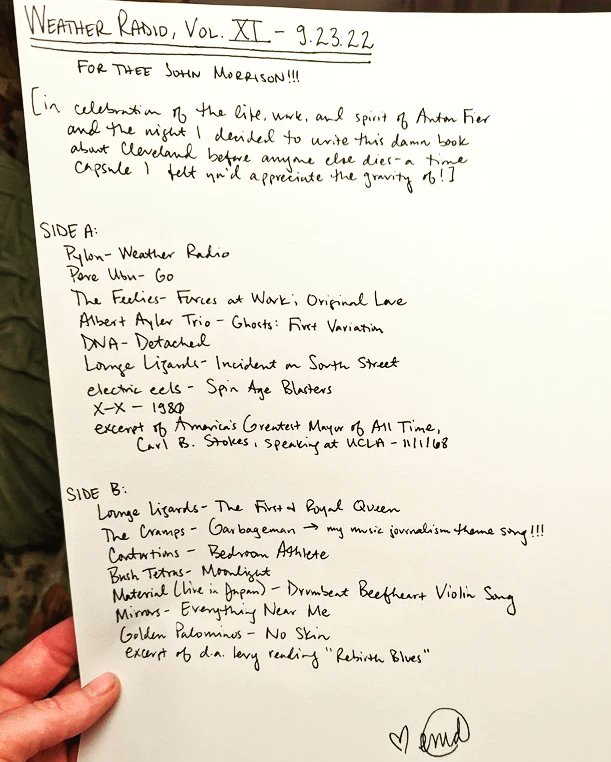 WEATHER RADIO, VOL. XI - 9.23.22
FOR THEE JOHN MORRISON!!!
[in celebration of the life, work, and spirit of Anton Fier
and the night I decided to write this damn book
about Cleveland before anyone else dies - a time
capsule I felt you'd appreciate the gravity of!]
SIDE A:
Pylon - Weather Radio
Pere Ubu - Go
The Feelies - Forces at Work; Original Love
Albert Ayler Trio - Ghosts: First Variation
DNA - Detached
Lounge Lizards - Incident on South Street
electric eels - Spin Age Blasters
X-X - 1980
excerpt of America's Greatest Mayor of All Time,
Carl B. Stokes, speaking at UCLA - 11/1/68
SIDE B:
Lounge Lizards - The First & Royal Queen
The Cramps - Garbageman → my music journalism theme song!!!
Contortions - Bedroom Athlete
Bush Tetras - Moonlight
Material (live in Japan) - Drumbeat Beefheart Violin Song
Mirrors - Everything Near Me
Golden Palominos - No Skin
excerpt of d.a. levy reading "Rebirth Blues"
♡ enid